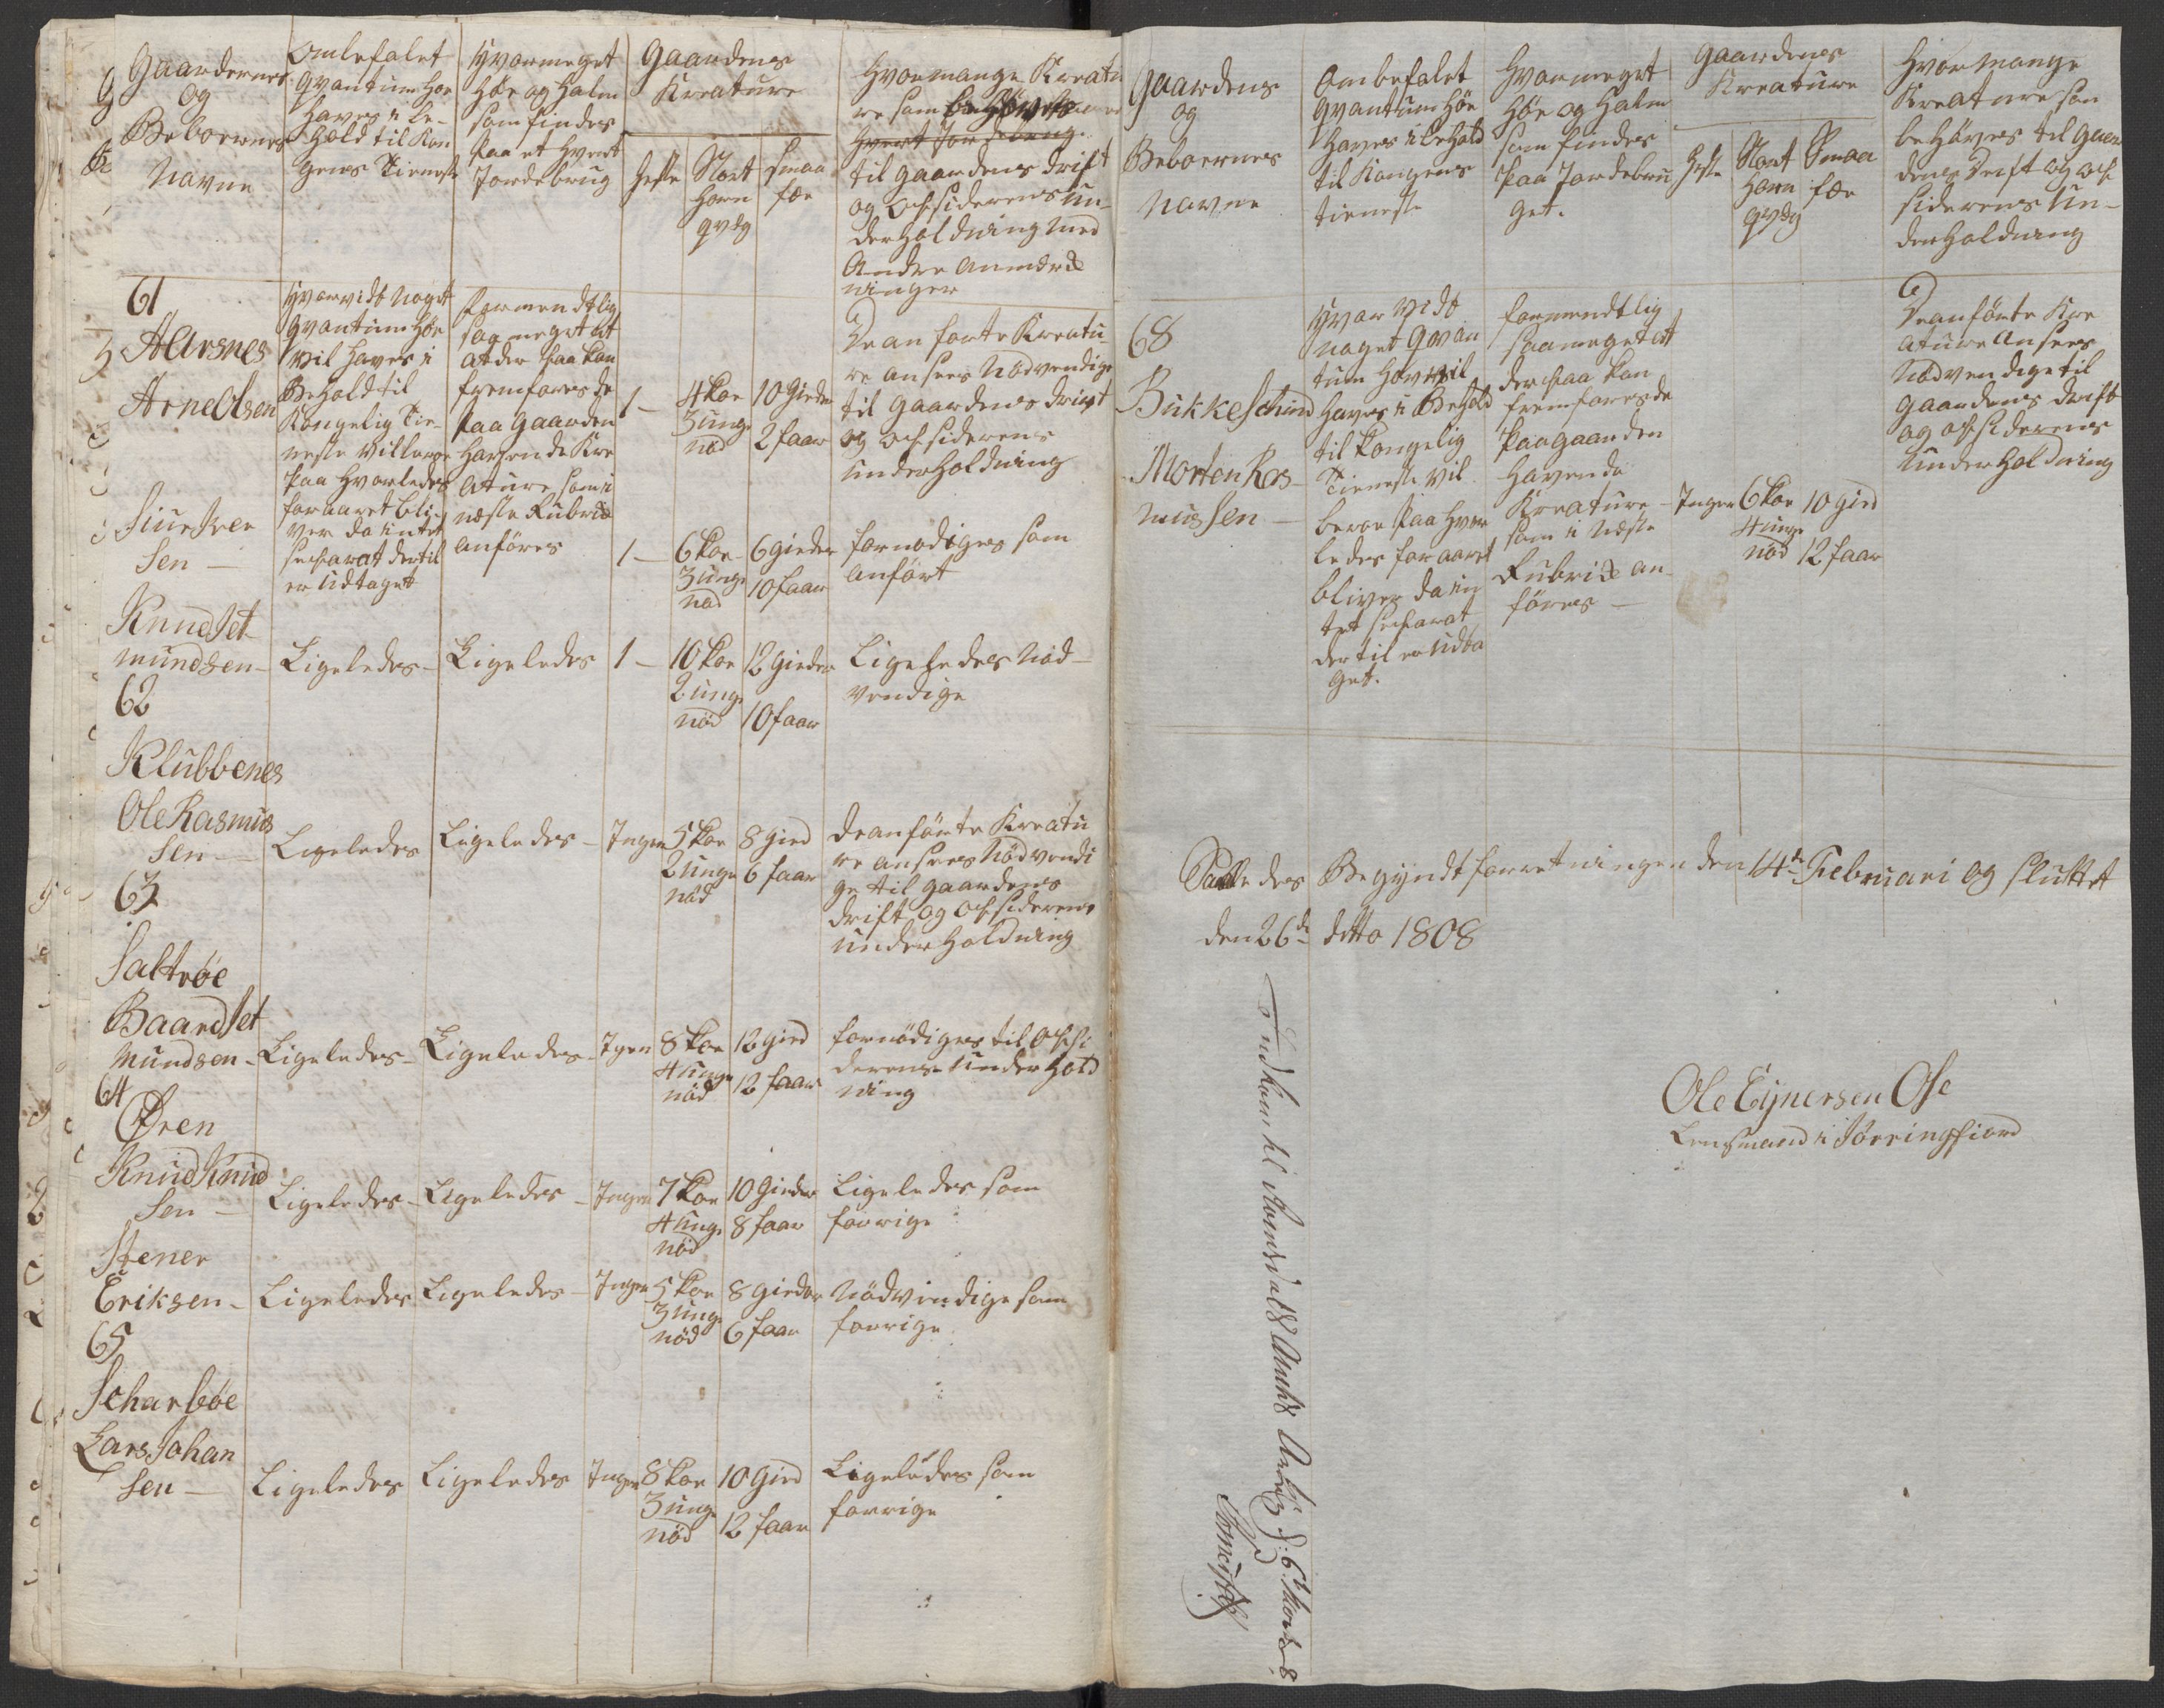 Gaardernes
og
Beboernes
Navne
Ombefalet
Qvantum Høe
haves i be-
hold til Kon
gens Tieneste
Hvormeget
Høe og Halm
som findes
paa et hvert
Jordebrug
Gaardens
Kreature
Heste
Stort
Horn
qvæg
Smaa
fæe
Hvormange Kreatu
re som behøves
hvert Jordebrug
til Gaardens Drift
og Opsiderens Un-
derholdning med
Andre Anmærk
ninger
61
Aarsnes
Arne Olsen
Hvorvidt noget
Qvantum Høe
vil haves i
Behold til
Kongelig Tie-
neste vil beroe
paa hvorledes
foraaret bli-
ver da intet
separat dertil
er udtaget
formendtlig
saa meget at
at der paa kan
fremfores de
paa Gaarden
havende Kre
ature som i
næste Rubrik
anføres
1 –
4 Kør
3 unge
nød
10 Gieder
2 faar
De anførte Kreatu-
re ansees nødvendige
til Gaardens Drift
og Opsiderens
underholdning
Siur Iver
sen –
1 –
6 Kør
3 unge
nød
6 gieder
10 faar
fornødiges som
anført
Knud Set
mundsen –
Ligeledes –
Ligeledes
1 –
10 Kør
2 unge
nød
12 Gieder
10 faar
Ligeledes nød-
vendige
62
Klubbenes
Ole Rasmus
sen –
Ligeledes
Ligeledes –
Ingen
5 Kør
2 unge
nød
8 Gied
6 faar
de anførte Kreatu
re ansees nødvendi
ge til Gaardens
drift og Opsiderens
underholdning
63
Saltrøe
Baard Set
mundsen –
Ligeledes –
Ligeledes –
Igen
8 Kør
4 unge
nød
12 Gied
12 faar
fornødiges til Opsi
derens Underhold
ning
64
Øren
Knud Knud
sen –
Ligeledes –
Ligeledes –
Ingen
7 Kør
4 unge
nød
10 Gieder
8 faar
Ligeledes som
forrige
Stener
Eriksen –
Ligeledes
Ligeledes –
Ingen
5 Kør
3 unge
nød
8 gieder
6 faar
Nødvendige som
forrige
65
Scharbøe
Lars Johan
sen –
Ligeledes
Ligeledes
Ingen
8 Kør
3 unge
nød
10 Gied
12 faar
Ligeledes som
forrige
Gaardens
og
Beboernes
Navne
Ombefalet
Qvantum Høe
haves i behold
til Kongens
tieneste
Hvormeget
Høe og Halm
som findes
paa Jordebru
get.
Gaardens
Kreature
Heste
Stort
Horn
qvæg
Smaa
fæe
Hvor Mange
Kreature som
behøves til Gaar
dens Drift og Op
siderens Un-
derholdning
68
Bukkeschind
Morten Ras
mussen –
Hvor vidt
noget Qvan
tum Høe vil
haves i Behold
til kongelig
Tieneste vil
beroe paa hvor
ledes foraaret
bliver da in
tet separat
dertil er udta
get.
formendtlig
saameget at
der paa kan
fremfores de
paa Gaarden
havende
Kreature
som i næste
Rubrik an
føres –
Ingen
6 Kør
4 unge
nød
10 gied
12 faar
De anførte Kre
ature ansees
nødvendige til
Gaardens drift
og Opsiderens
underholdning
Saaledes Begyndt forretningen den 14de Februari og sluttet
den 26de ditto 1808
Ole Eijnersen Ose
Lensmand i Jørringfiord
Indkom til Romsdals Amts d: 6t Marts 8.